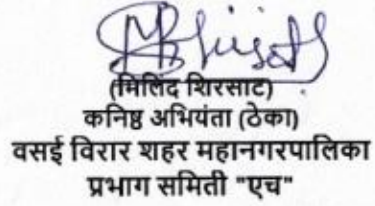 (मिलिंद शिरसाट)
कनिष्ठ अभियंता (ठेका)
वसई विरार शहर महानगरपालिका
प्रभाग समिती "एच"